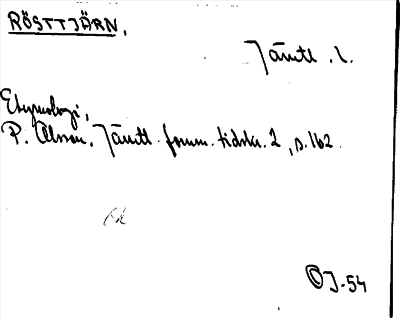 RÖSTTJÄRN.
Jämtl. l.
Etymologi,
P. Olsson. Jämtl. fornm. tidskr. 2, s. 162.
ÖJ-54